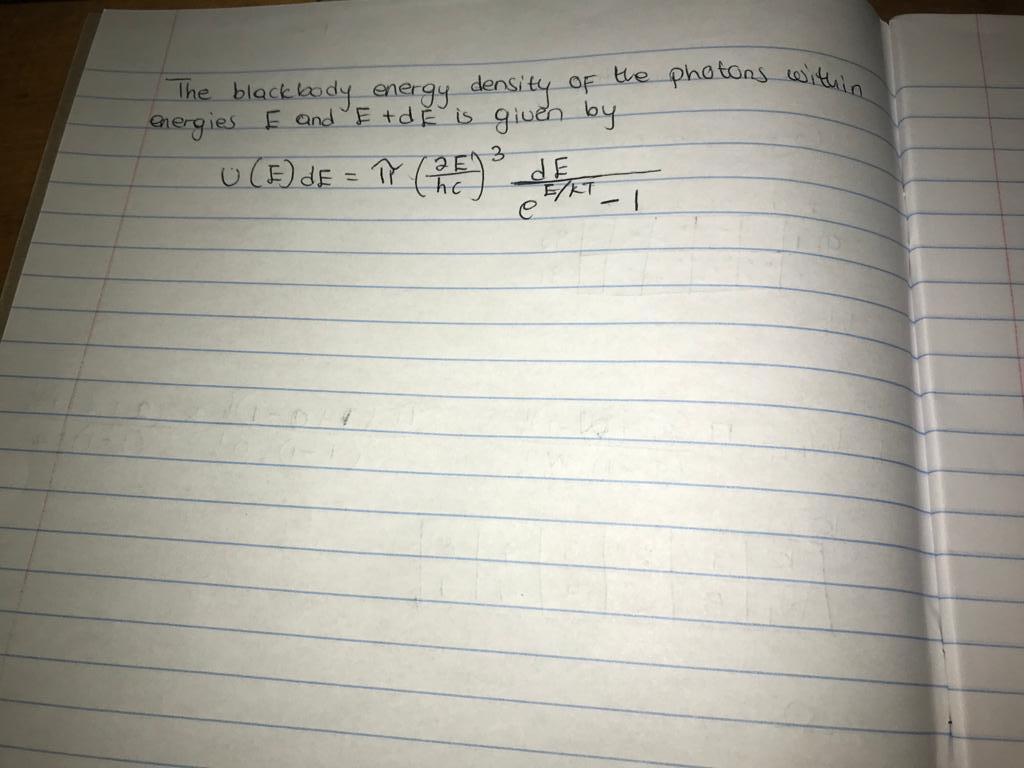 The blackbody energy density OF the photons within
energies E and E + dE is given by
U(E)dE = π (2E/hc)³ dE/(e^(E/kT) - 1)